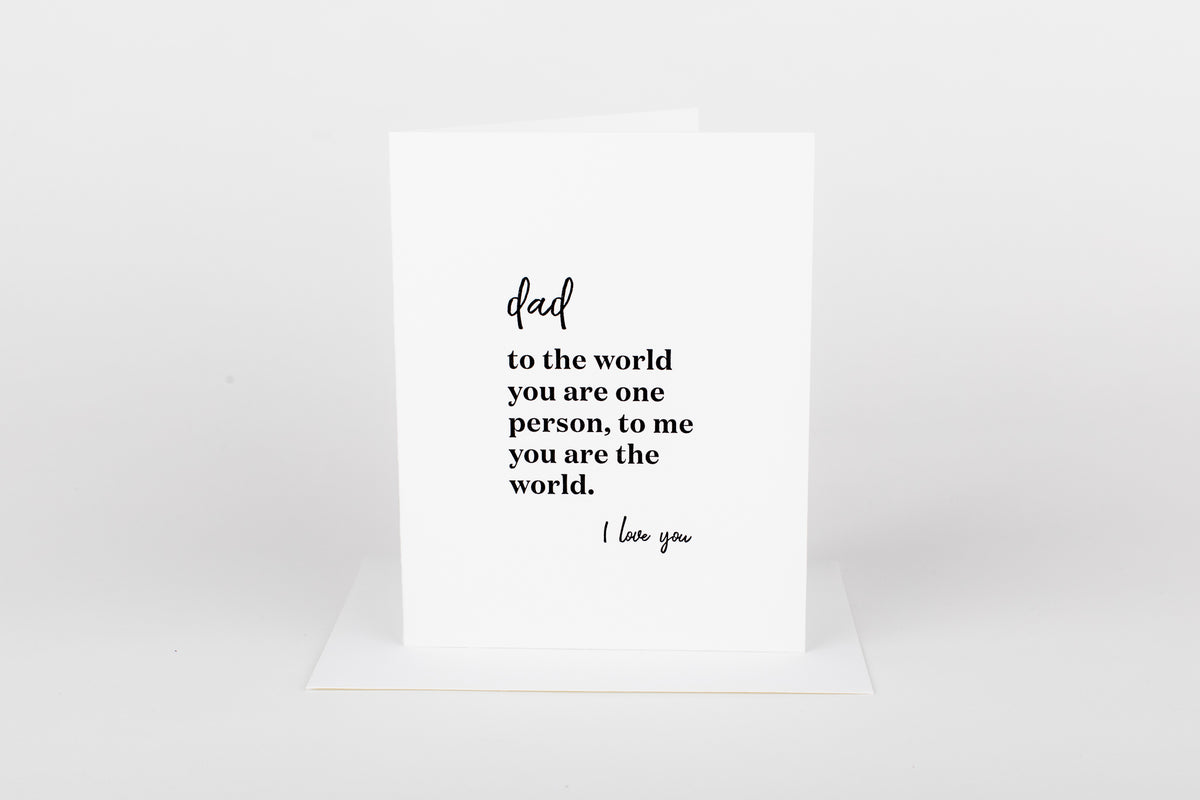 dad
to the world
you are one
person, to me
you are the
world.
I love you